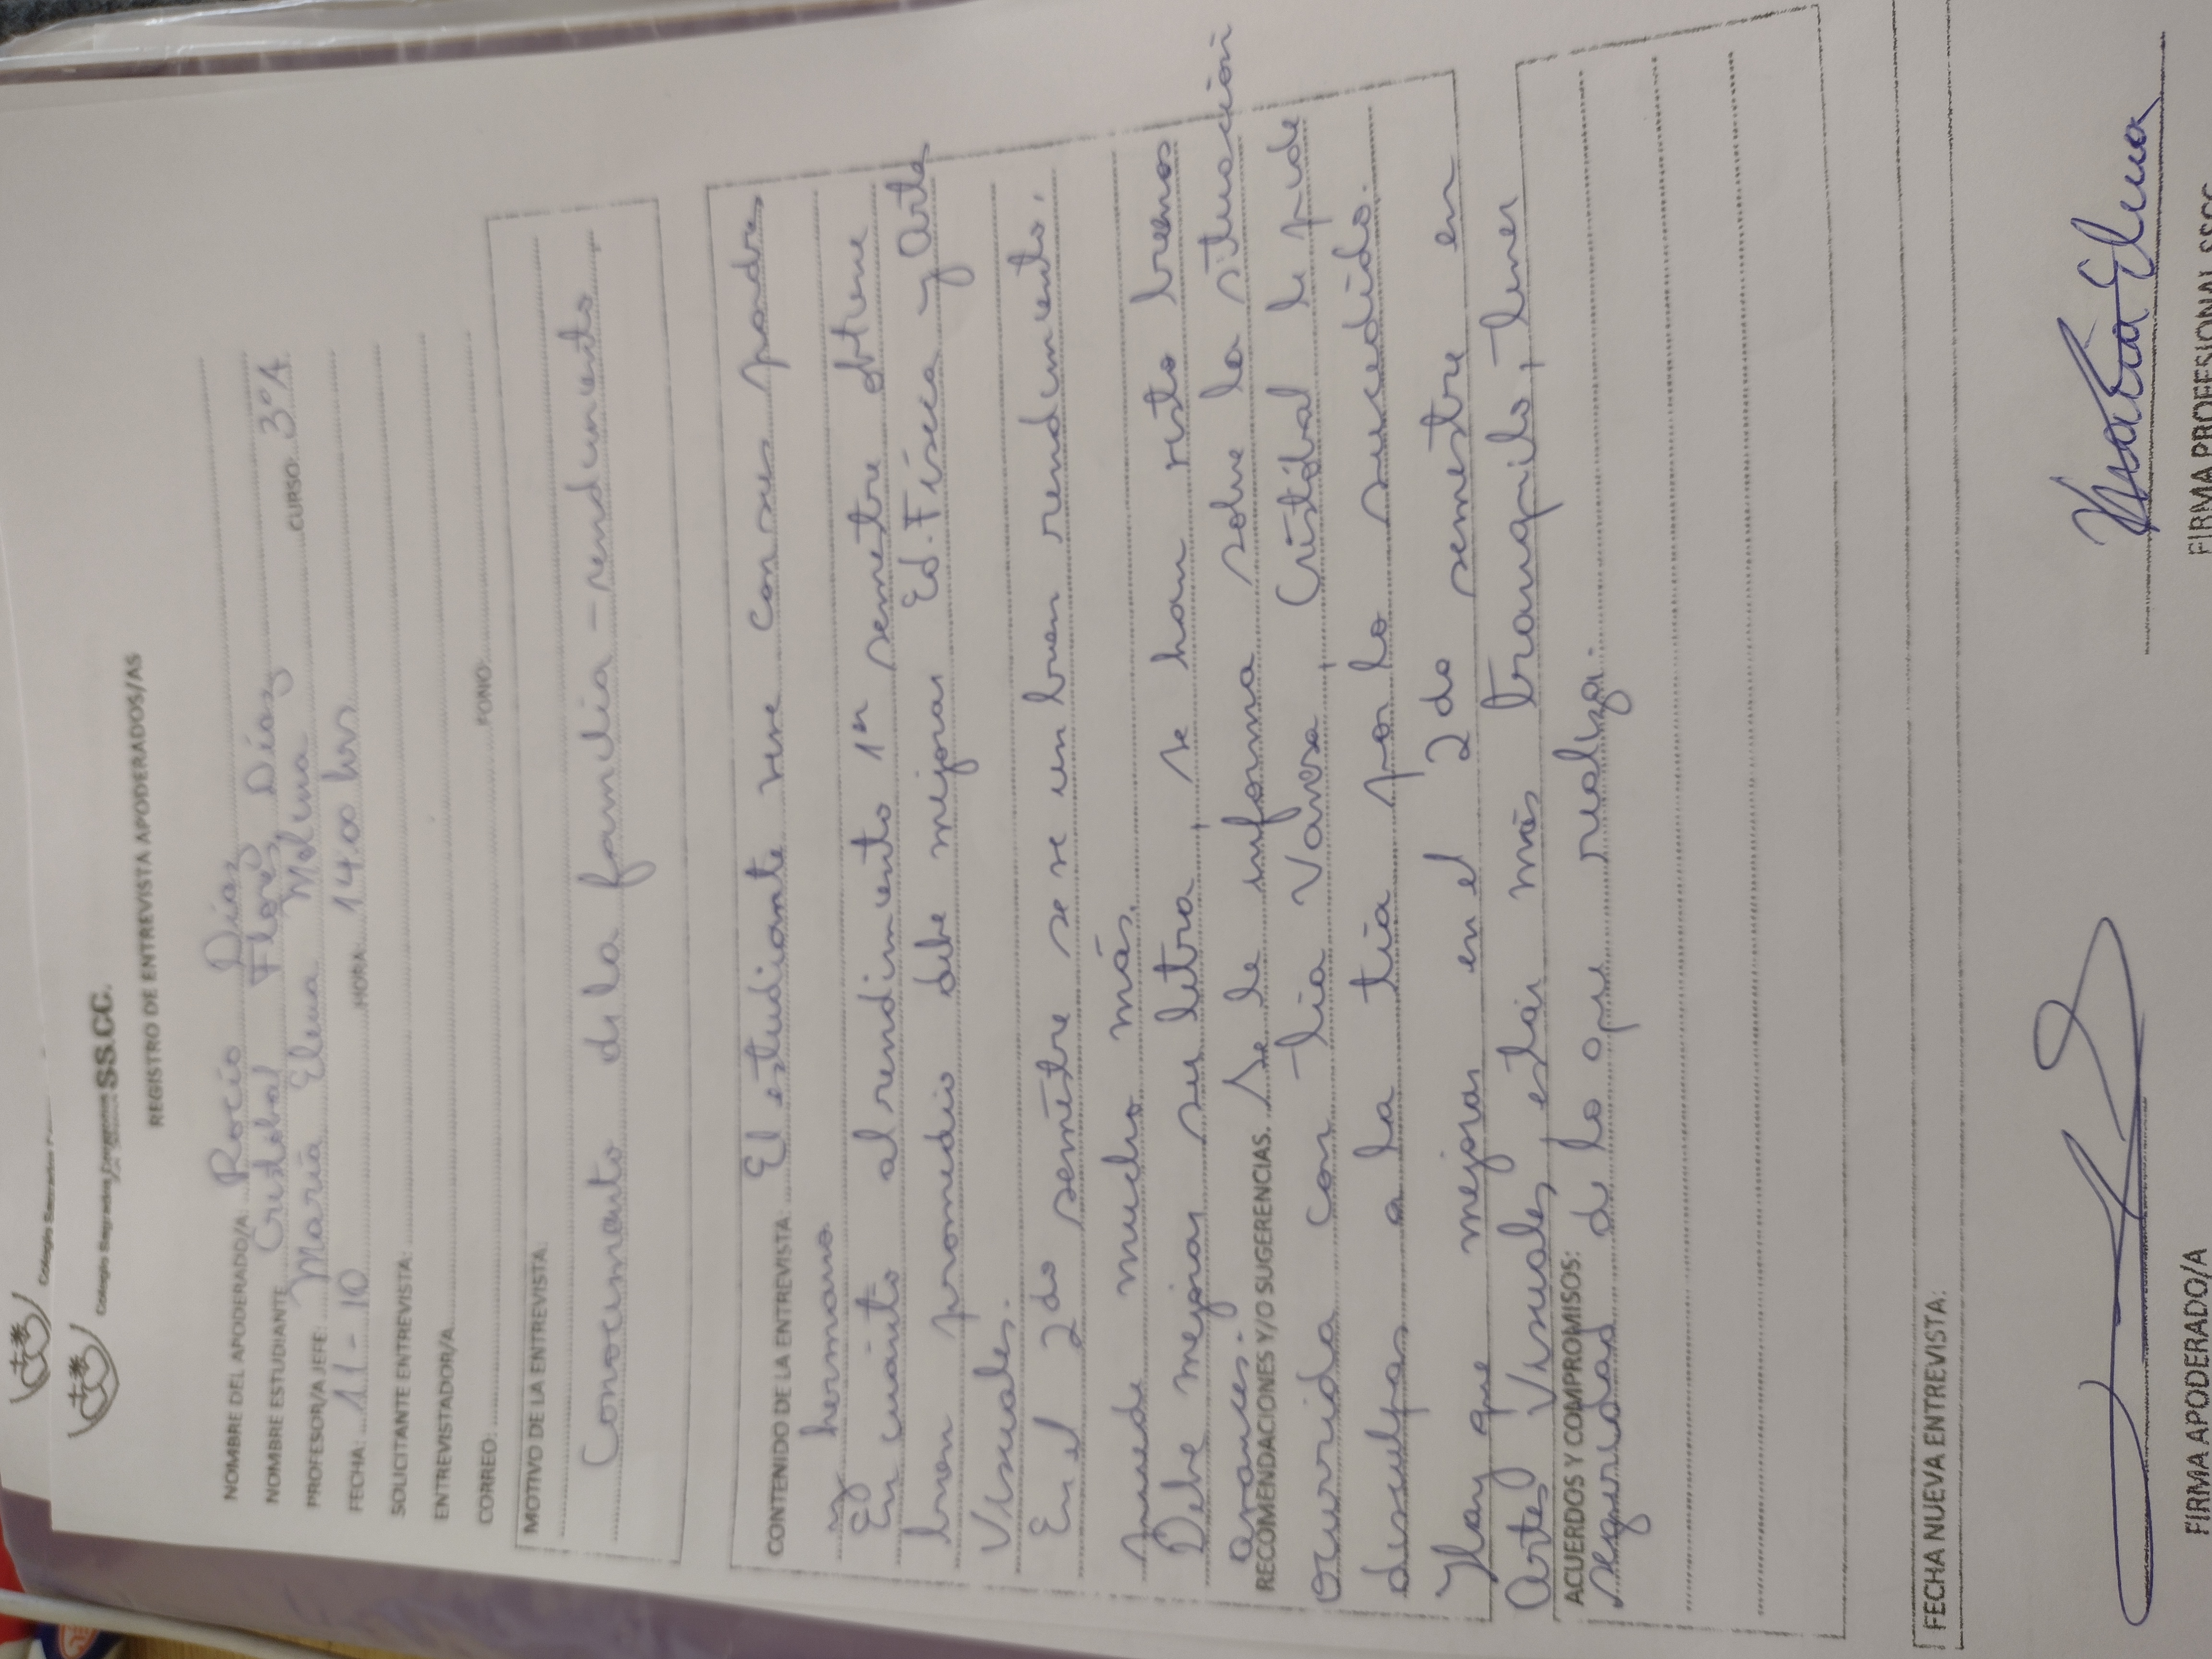 Colegio Sagrados
Colegio Sagrados Corazones SS.CC.
REGISTRO DE ENTREVISTA APODERADOS/AS
NOMBRE DEL APODERADO/A: Rocío Díaz
NOMBRE ESTUDIANTE: Cristóbal Flores Díaz CURSO: 3°A
PROFESOR/A JEFE: María Elena Molina
FECHA: 11-10 HORA: 14:00 hrs
SOLICITANTE ENTREVISTA:
ENTREVISTADOR/A:
CORREO: FONO:
MOTIVO DE LA ENTREVISTA:
Conocimiento de la familia - rendimiento
CONTENIDO DE LA ENTREVISTA: El estudiante vive con sus padres
y hermano
En cuánto al rendimiento 1er semestre obtiene
buen promedio debe mejorar Ed. Física y Artes
Visuales.
En el 2do semestre se ve un buen rendimiento,
puede mucho más.
Debe mejorar su letra, se han visto buenos
avances.
RECOMENDACIONES Y/O SUGERENCIAS. Se le informa sobre la situación
ocurrida con tía Vanesa, Cristóbal le pide
disculpas a la tía por lo sucedido.
Hay que mejorar en el 2do semestre en
Artes Visuales, estar más tranquilo, tener
ACUERDOS Y COMPROMISOS:
seguridad de lo que realiza.
FECHA NUEVA ENTREVISTA:
FIRMA APODERADO/A
María Elena
FIRMA PROFESIONAL SSCC